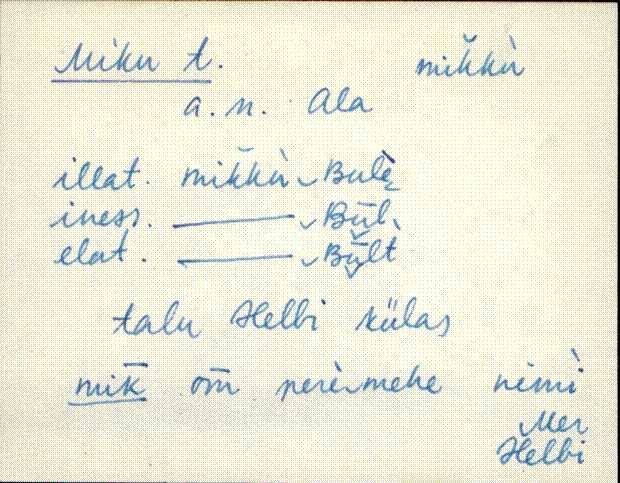 Miku t. mik̆kù
a.n. Ala
illat. mik̆kù Bulè
iness. ——— Būl
elat. ——— Bŭlt
talu Helbi külas
mik̄ om̄ perè mehe nimì
Mer
Helbi